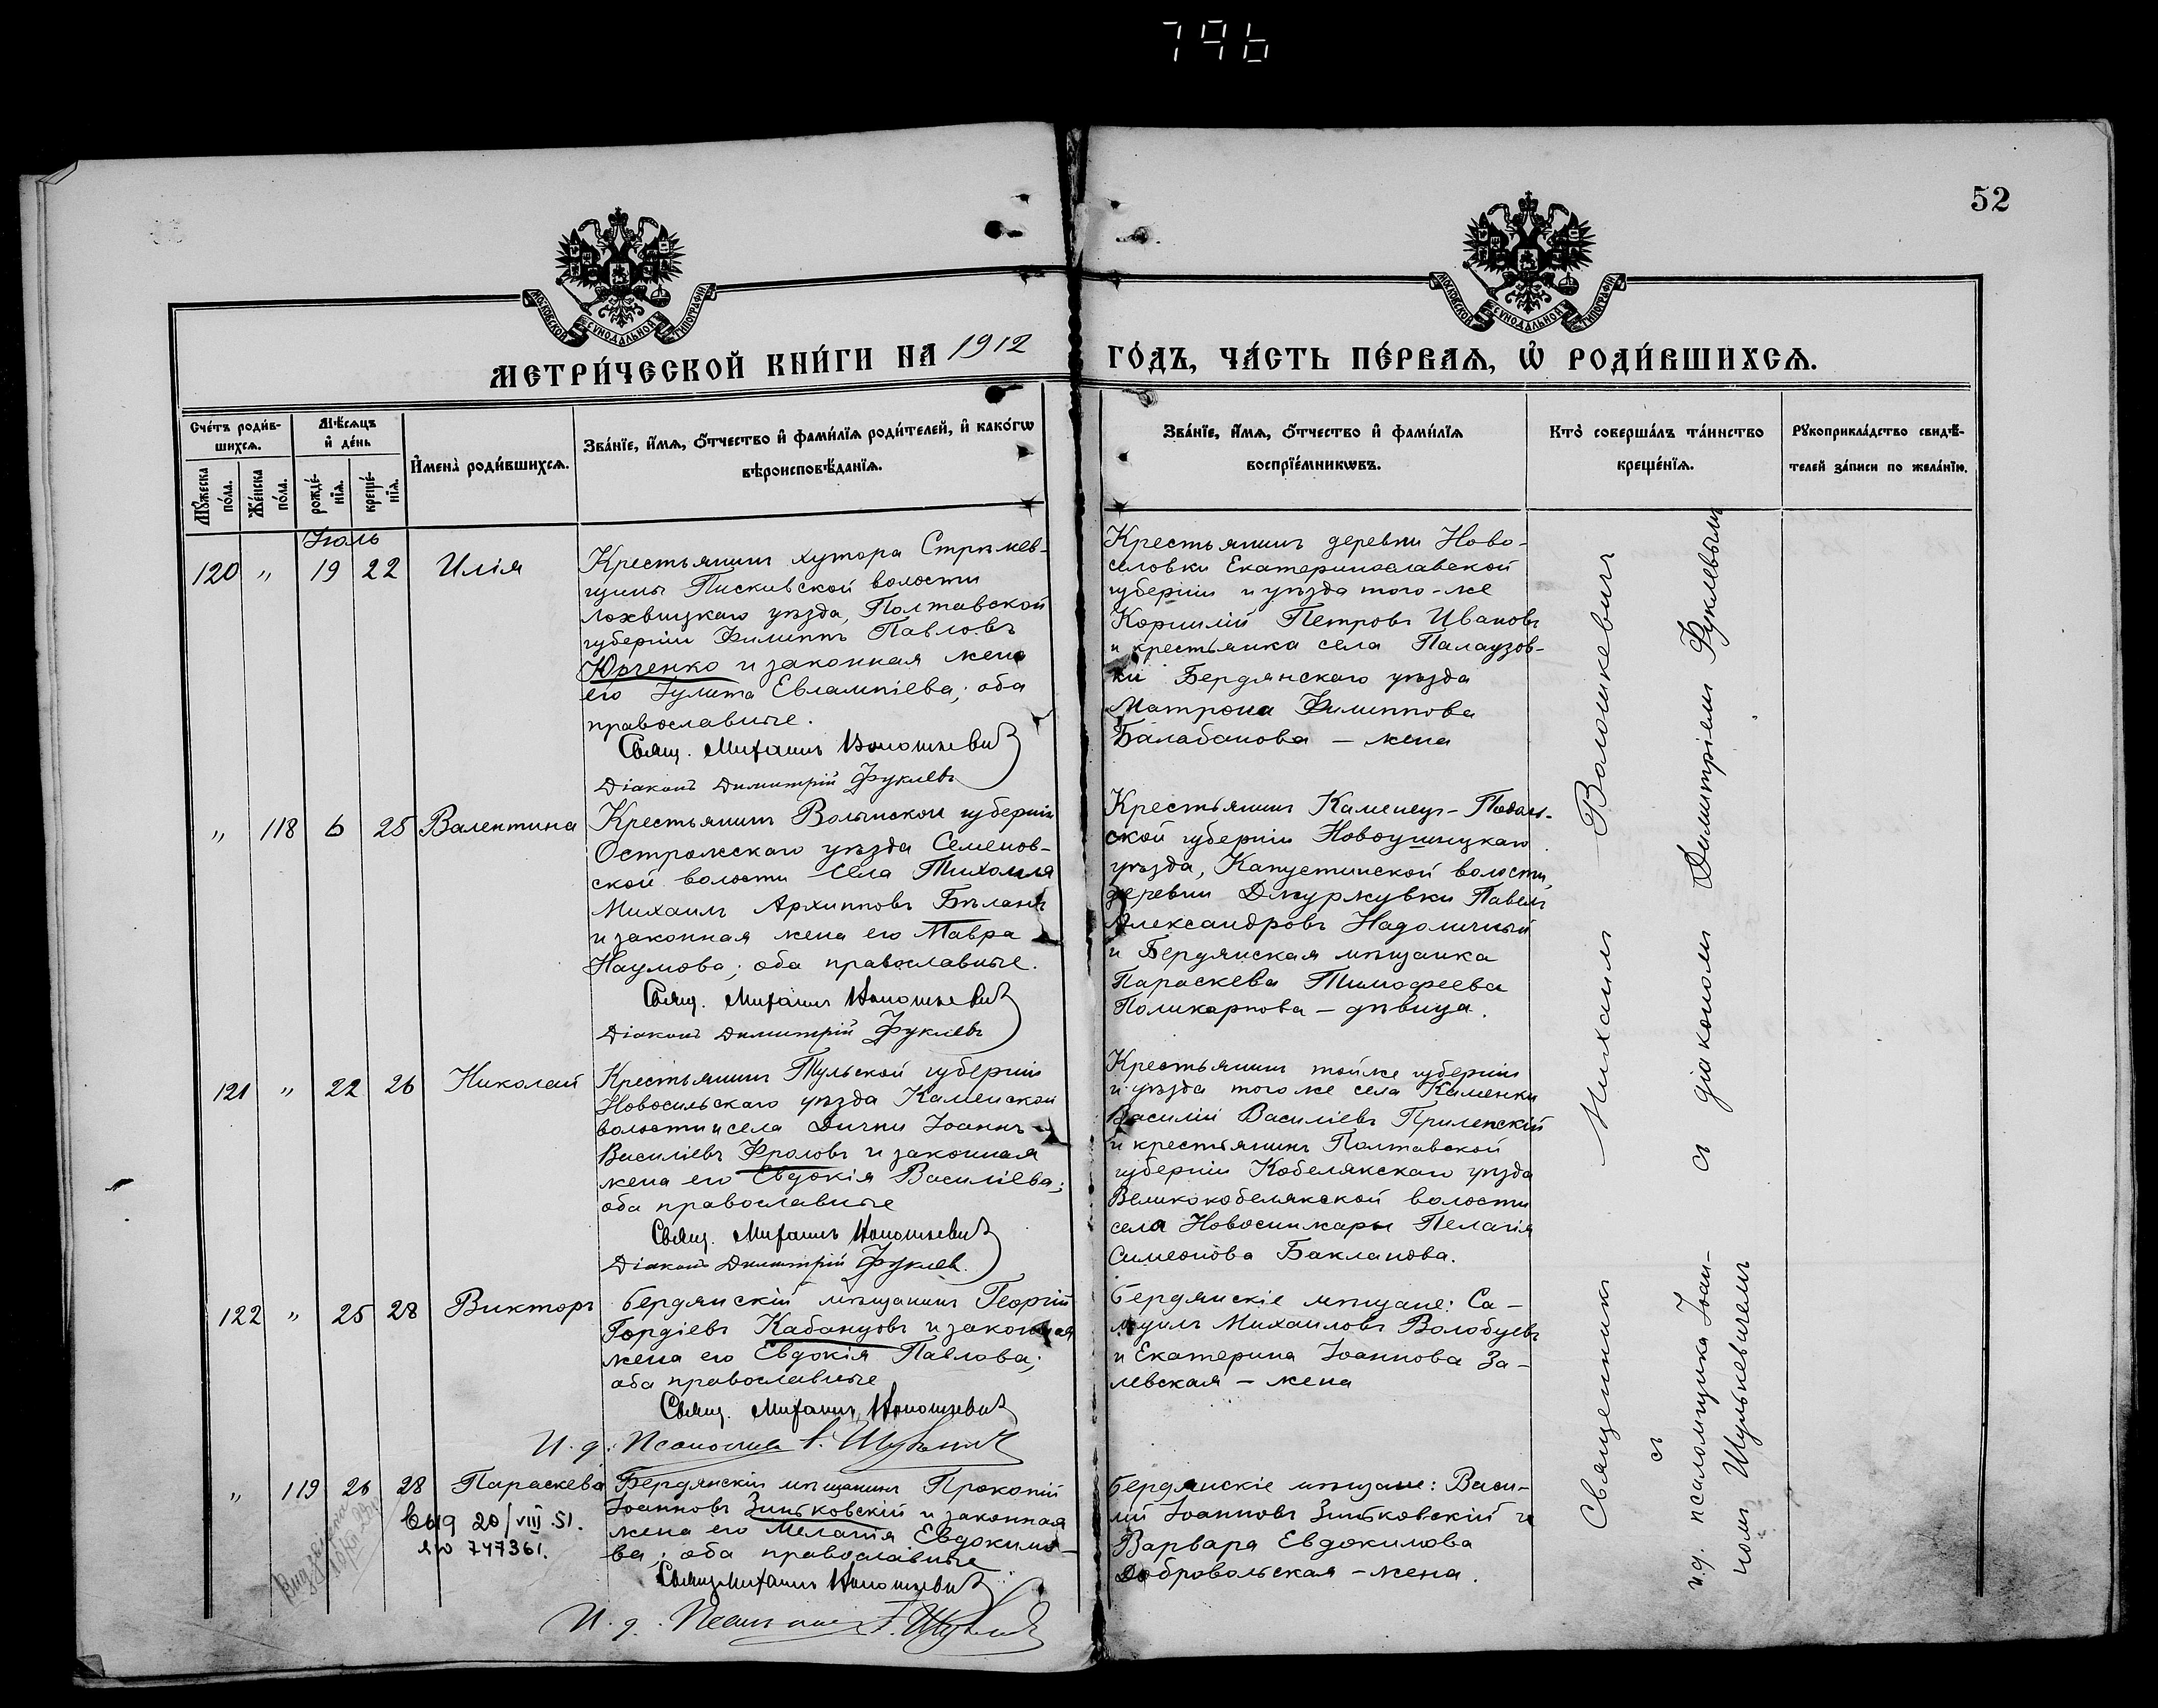 796
52
МОСКОВСКОЙ СѴНОДАЛЬНОЙ ТИПОГРАФІИ
МОСКОВСКОЙ СѴНОДАЛЬНОЙ ТИПОГРАФІИ
МЕТРИ́ЧЕСКОЙ КНИ́ГИ НА 1912 ГО́ДЪ, ЧА́СТЬ ПЕ́РВАѦ, Ѡ҆ РОДИ́ВШИХСѦ.
Сче́тъ роди́в-
шихсѧ.
Мꙋ́жеска
по́ла.
Же́нска
по́ла.
Мѣ́сѧцъ
и҆ де́нь
рожде́-
нїѧ.
креще́-
нїѧ.
И҆мена̀ роди́вшихсѧ.
Зва́нїе, и҆́мѧ, ѻ҆́тчество и҆ фами́лїѧ роди́телей, и҆ како́гѡ
вѣроисповѣ́данїѧ.
Зва́нїе, и҆́мѧ, ѻ҆́тчество и҆ фами́лїѧ
воспрїе́мникѡвъ.
Кто̀ соверша́лъ та́инство
креще́нїѧ.
Рꙋкоприкла́дство свидѣ́-
телей за́писи по жела́нїю.
Іюль
120 " 19 22 Илія
Крестьянинъ хутора
Пискивской волости
Лохвицкаго уѣзда, Полтавской
губерніи Филиппъ Павловъ
Юрченко и законная жена
его Іулита Евлампіева; оба
православные.
Свящ. Михаилъ Волошкевич
Діаконъ Димитрій Фуклевъ
Крестьянинъ деревни Ново-
селовки Екатеринославской
губерніи и уѣзда того-же
Корнилій Петровъ Ивановъ
и крестьянка села Палаузов-
ки Бердянскаго уѣзда
Матрона Филиппова
Балабанова – жена
" 118 6 25 Валентина
Крестьянинъ Волынской губерніи
Острожскаго уѣзда Семенов-
ской волости села Тихомля
Михаилъ Архипповъ Бѣланъ
и законная жена его Мавра
Наумова; оба православные.
Свящ. Михаилъ Волошкевич
Діаконъ Димитрій Фуклевъ
Крестьянинъ Каменец-Подоль-
ской губерніи Новоушицкаго
уѣзда, Капустинской волости,
деревни Джуржувки Павелъ
Александровъ Надоличный
и Бердянская мѣщанка
Параскева Тимофеева
Поликарпова – дѣвица.
121 " 22 26 Николай
Крестьянинъ Тульской губерніи
Новосильскаго уѣзда Каменской
волости и села Дички Іоаннъ
Василіевъ Фроловъ и законная
жена его Евдокія Василіева;
оба православные
Свящ. Михаилъ Волошкевич
Діаконъ Димитрій Фуклев.
Крестьянинъ той же губерніи
и уѣзда того же села Каменки
Василій Василіевъ Приленскій
и крестьянинъ Полтавской
губерніи Кобелякскаго уѣзда
Великокобелякской волости
села Новосинжары Пелагія
Симеонова Бакланова.
122 " 25 28 Викторъ
Бердянскій мѣщанинъ Георгій
Гордіевъ Кабанцовъ и законная
жена его Евдокія Павлова;
оба православные
Свящ. Михаилъ Волошкевич
И. д.
Бердянскіе мѣщане: Са-
муилъ Михаиловъ Волобуевъ
и Екатерина Іоаннова За-
левская – жена
" 119 26 28 Параскева
Бердянскій мѣщанинъ Прокопій
Іоанновъ Зиньковскій и законная
жена его Меланія Евдокимо-
ва; оба православные
Свящ. Михаилъ Волошкевич
И. д.
Бердянскіе мѣщане: Васи-
лій Іоанновъ Зиньковскій и
Варвара Евдокимова
Добровольская – жена.
20/VIII 51.
747361.
Священникъ Михаилъ Волошкевичъ
съ діакономъ Димитріемъ Фуклевымъ
съ
и.д. псаломщика Іоан-
номъ Шулькевичемъ